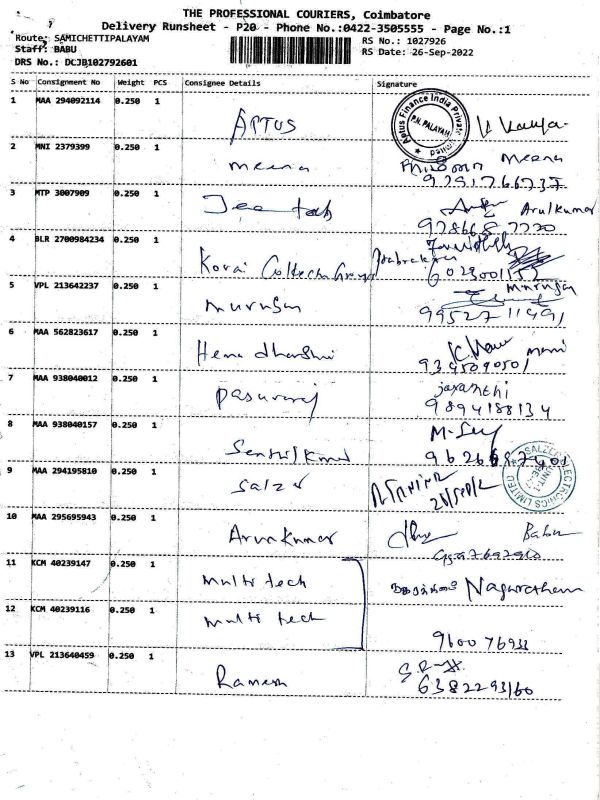 THE PROFESSIONAL COURIERS, Coimbatore
Delivery Runsheet - P20 - Phone No.:0422-3505555 - Page No.:1
Route: SAMICHETTIPALAYAM
RS No.: 1027926
Staff: BABU
RS Date: 26-Sep-2022
DRS No.: DCJB102792601
S No Consignment No Weight PCS Consignee Details Signature
1 MAA 294092114 0.250 1 APTUS
Aptus Finance India Private Limited
P.N. PALAYAM
2 MNI 2379399 0.250 1 meena Meena
3 MTP 3007909 0.250 1 Arulkumar
4 BLR 2700984234 0.250 1 Kovai
5 VPL 213642237 0.250 1 murugan murugan
99527 11491
6 MAA 562823617 0.250 1 Hema dharshni
9345090501
7 MAA 938040012 0.250 1 pasuvaraj jayanthi
9894188134
8 MAA 938040157 0.250 1 Senthil Kumar
9 MAA 294195810 0.250 1 Salzer
SALZER ELECTRONICS LIMITED
10 MAA 295695943 0.250 1 Arun Kumar Babu
11 KCM 40239147 0.250 1 multi tech Nagarathanam
12 KCM 40239116 0.250 1 multi tech
13 VPL 213640459 0.250 1 Ramesh
6382293160